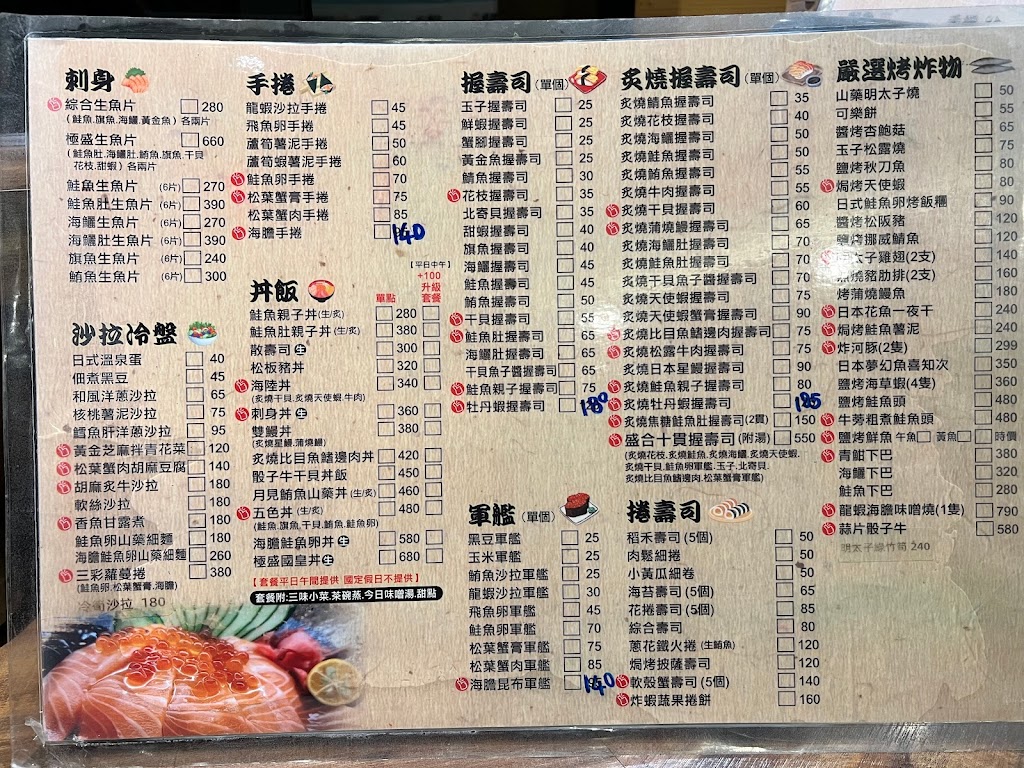 刺身
綜合生魚片 280
(鮭魚.旗魚.海鱺.黃金魚)各兩片
極盛生魚片 660
(鮭魚肚.海鱺肚.鮪魚.旗魚.干貝
花枝.甜蝦)各兩片
鮭魚生魚片 (6片) 270
鮭魚肚生魚片 (6片) 390
海鱺生魚片 (6片) 270
海鱺肚生魚片 (6片) 390
旗魚生魚片 (6片) 240
鮪魚生魚片 (6片) 300
沙拉冷盤
日式溫泉蛋 40
佃煮黑豆 45
和風洋蔥沙拉 65
核桃薯泥沙拉 75
鱈魚肝洋蔥沙拉 95
黃金芝麻拌青花菜 120
松葉蟹肉胡麻豆腐 140
胡麻炙牛沙拉 180
軟絲沙拉 180
香魚甘露煮 180
鮭魚卵山藥細麵 180
海膽鮭魚卵山藥細麵 260
三彩羅蔓捲 380
(鮭魚卵.松葉蟹膏.海膽)
沙拉 180
手捲
龍蝦沙拉手捲 45
飛魚卵手捲 45
蘆筍手捲 50
蘆筍薯泥手捲 60
鮭魚卵手捲 70
松葉蟹膏手捲 75
松葉蟹肉手捲 85
海膽手捲 140
丼飯
【平日中午】
單點 +100
升級
套餐
鮭魚親子丼(生/炙) 280
鮭魚肚親子丼(生/炙) 380
散壽司 生 300
松板豬丼 320
海陸丼 340
(炙燒干貝.炙燒天使蝦.牛肉)
刺身丼 生 360
雙鰻丼 380
(炙燒星鰻.蒲燒鰻)
炙燒比目魚鰭邊肉丼 420
骰子牛干貝丼飯 450
月見鮪魚山藥丼(生/炙) 460
五色丼(生/炙) 480
(鮭魚.旗魚.干貝.鮪魚.鮭魚卵)
海膽鮭魚卵丼 生 580
極盛國皇丼 生 680
【套餐平日午間提供 國定假日不提供】
套餐附:三味小菜.茶碗蒸.今日味噌湯.甜點
握壽司(單個)
玉子握壽司 25
鮮蝦握壽司 25
蟹腳握壽司 25
黃金魚握壽司 25
鯖魚握壽司 30
花枝握壽司 35
北寄貝握壽司 35
甜蝦握壽司 40
旗魚握壽司 40
海鱺握壽司 45
鮭魚握壽司 45
鮪魚握壽司 50
干貝握壽司 55
鮭魚肚握壽司 65
海鱺肚握壽司 65
干貝魚子醬握壽司 65
鮭魚親子握壽司 75
牡丹蝦握壽司 180
軍艦(單個)
黑豆軍艦 25
玉米軍艦 25
鮪魚沙拉軍艦 25
龍蝦沙拉軍艦 30
飛魚卵軍艦 45
鮭魚卵軍艦 70
松葉蟹膏軍艦 75
松葉蟹肉軍艦 85
海膽昆布軍艦 140
炙燒握壽司(單個)
炙燒鯖魚握壽司 35
炙燒花枝握壽司 40
炙燒海鱺握壽司 50
炙燒鮭魚握壽司 50
炙燒鮪魚握壽司 55
炙燒牛肉握壽司 55
炙燒干貝握壽司 60
炙燒蒲燒鰻握壽司 65
炙燒海鱺肚握壽司 70
炙燒鮭魚肚握壽司 70
炙燒干貝魚子醬握壽司 70
炙燒天使蝦握壽司 75
炙燒天使蟹膏握壽司 90
炙燒比目魚鰭邊肉握壽司 75
炙燒松露牛肉握壽司 80
炙燒日本星鰻握壽司 90
炙燒鮭魚親子握壽司 80
炙燒牡丹蝦握壽司 185
炙燒焦糖鮭魚肚握壽司(2貫) 150
盛合十貫握壽司(附湯) 550
(炙燒花枝.炙燒鮭魚.炙燒海鱺.炙燒天使蝦.
炙燒干貝.鮭魚卵軍艦.玉子.北寄貝.
炙燒比目魚鰭邊肉.松葉蟹膏軍艦)
捲壽司
稻禾壽司(5個) 50
肉鬆細捲 50
小黃瓜細卷 50
海苔壽司(5個) 65
花捲壽司(5個) 85
綜合壽司 80
蔥花鐵火捲(生鮪魚) 120
焗烤披薩壽司 120
軟殼蟹壽司(5個) 140
炸蝦蔬果捲餅 160
嚴選烤炸物
山藥明太子燒 50
可樂餅 55
醬烤杏鮑菇 65
玉子松露燒 75
鹽烤秋刀魚 80
焗烤天使蝦 80
日式鮭魚卵烤飯糰 90
醬烤松阪豬 120
鹽燒挪威鯖魚 120
明太子雞翅(2支) 140
燒豬肋排(2支) 160
烤蒲燒鰻魚 180
日本花魚一夜干 240
焗烤鮭魚薯泥 240
炸河豚(2隻) 299
日本夢幻魚喜知次 350
鹽烤海草蝦(4隻) 360
鹽烤鮭魚頭 480
牛蒡粗煮鮭魚頭 480
鹽烤鮮魚 午魚 黃魚 時價
青魽下巴 380
海鱺下巴 320
鮭魚下巴 280
龍蝦海膽味噌燒(1隻) 790
蒜片骰子牛 580
明太子綠竹筍 240